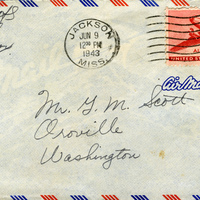 JACKSON
JUN 9
12 30 PM
1943
MISS.
UNITED STATES
Air Mail
Mr. G. M. Scott
Oroville
Washington